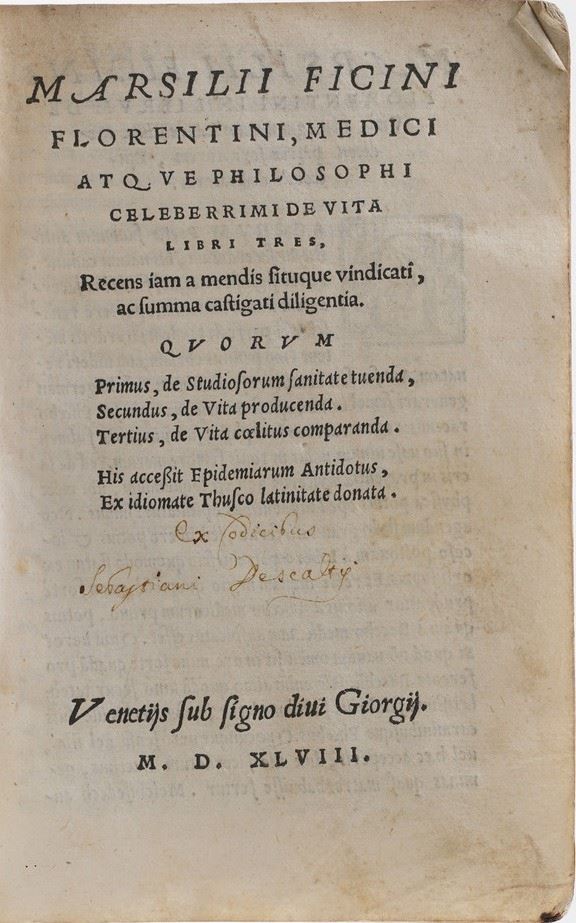 MARSILII FICINI
FLORENTINI, MEDICI
ATQVE PHILOSOPHI
CELEBERRIMI DE VITA
LIBRI TRES,
Recens iam a mendis ſituque vindicati,
ac ſumma caſtigati diligentia.
QVORVM
Primus, de Studioſorum ſanitate tuenda,
Secundus, de Vita producenda.
Tertius, de Vita cœlitus comparanda.
His acceßit Epidemiarum Antidotus,
Ex idiomate Thuſco latinitate donata.
Ex Codicibus
Sebastiani
Venetijs ſub ſigno diui Giorgij.
M. D. XLVIII.